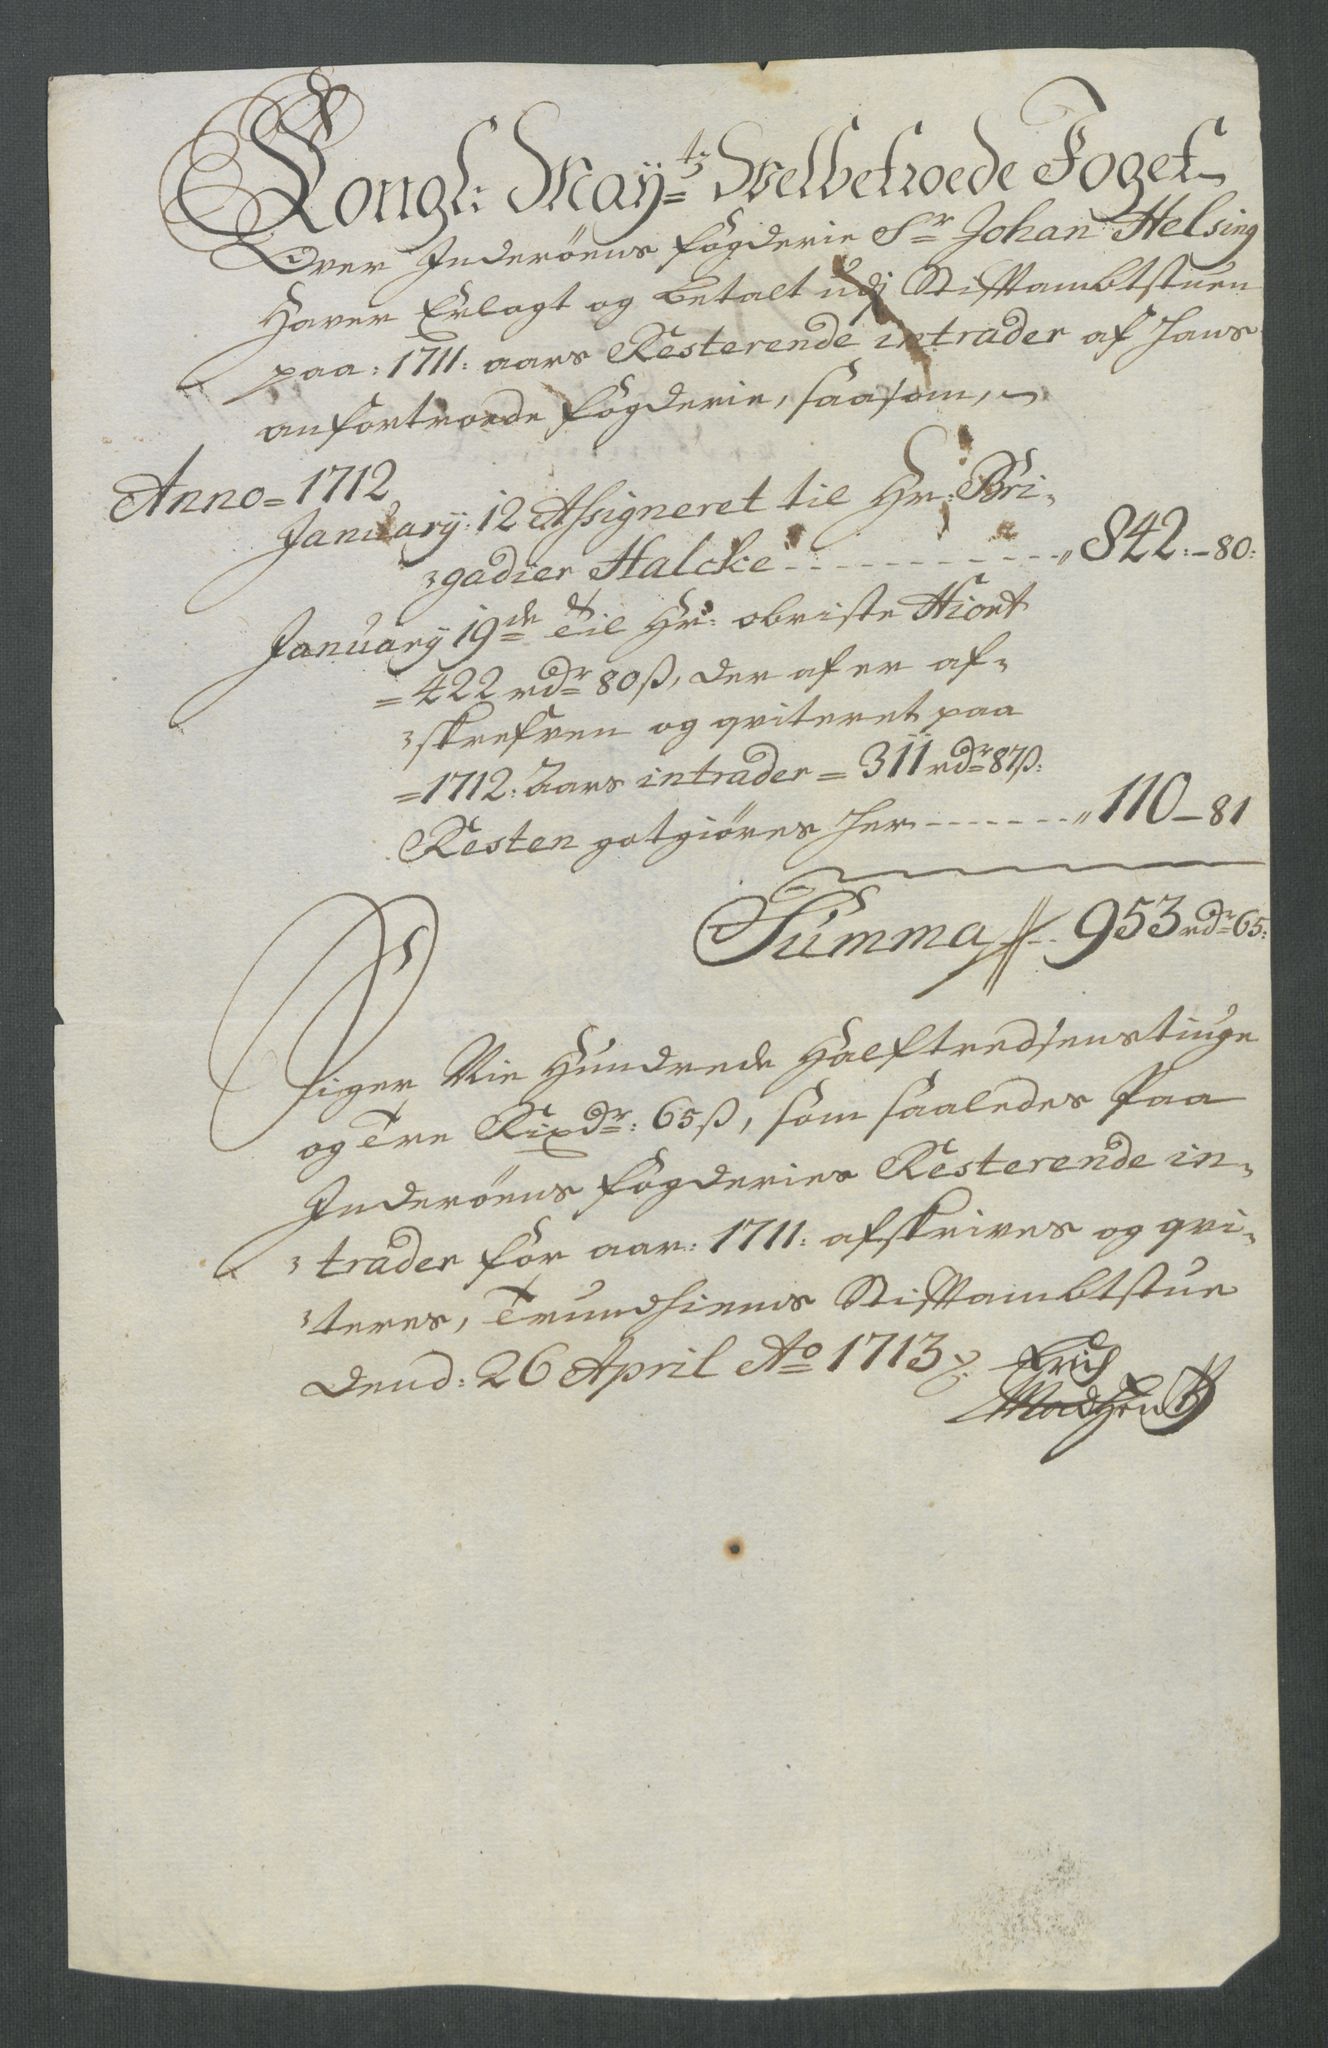 Kongl: Maÿ=ts Welbetroede Foget
Over Inderöens fögderie Sr Johan Helsing
Haver Erlagt og betalt udj Stifftambtstuen
paa: 1711: aars Resterende intrader af hans
anfortroede fögderie, saasom,
Anno= 1712
Januarij: 12 Assigneret til Hr: Bri-
gadier Halcke - - - - - - - - - - „ 842:-80:
Januarij 19de Til Hr: obriste Hiort
=422 rdr 80ß, der af er af-
skrefven og qviteret paa
=1712: Aars intrader = 311 rdr 87ß:
Resten gotgiöres her - - - - - - - „ 110-81
Summa 953 rdr 65:
Siger Nie Hundrede Halftredsenstiuge
og Tre Rixdr: 65ß, som saaledes Paa
Inderöens fögderies Resterende in-
trader for aar: 1711: afskrives og qvi-
teres, Trundhiems Stifftambtstue
dend: 26 April Ao 1713
Erich